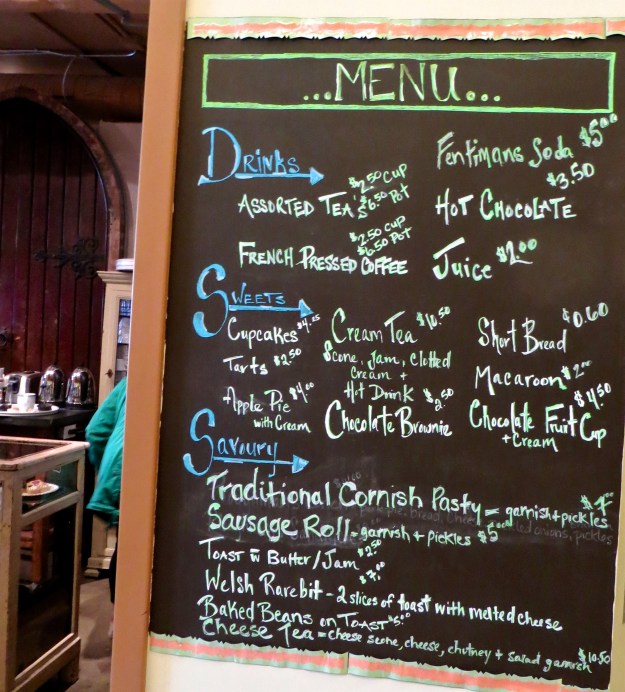 ...MENU...
DRINKS
ASSORTED TEAS $2.50 CUP $6.50 POT
FRENCH PRESSED COFFEE $2.50 CUP $6.50 POT
Fentimans Soda $5.00
HOT CHOCOLATE $3.50
Juice $2.00
SWEETS
Cupcakes $4.25
Tarts $2.50
Apple Pie $4.00
with Cream
Cream Tea $10.50
Scone, Jam, Clotted
Cream +
Hot Drink
Chocolate Brownie $2.50
Short Bread $0.60
Macaroon $2.00
Chocolate Fruit Cup $4.50
+ Cream
Savoury
Traditional Cornish Pasty = garnish + pickles
Sausage Roll - garnish + pickles $5.00
TOAST w BUTTER/JAM $2.50
Welsh Rarebit - 2 slices of toast with melted cheese
Baked Beans on TOAST $5.00
CHEESE TEA = cheese scone, cheese, chutney + salad garnish $10.50